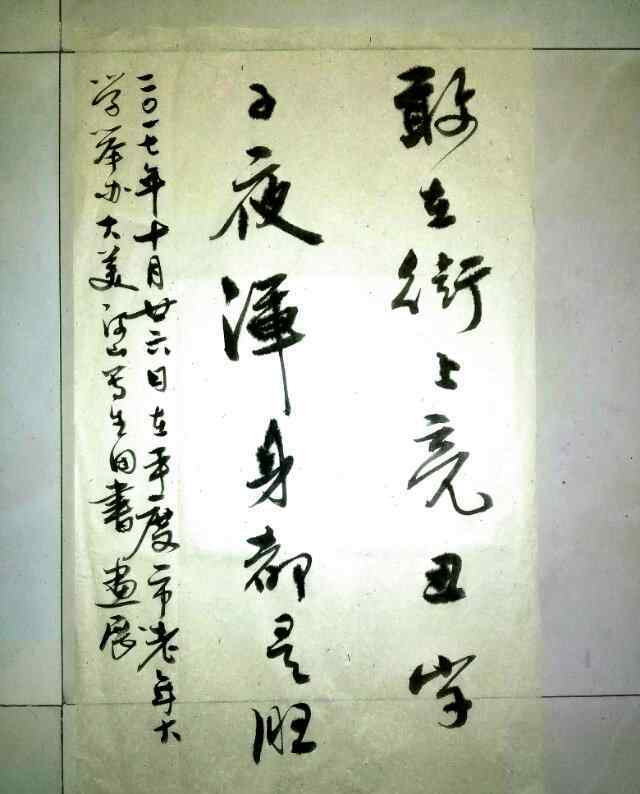 敢在街上亮丑字
子夜渾身都是胆
二〇一七年十月廿六日在平度市老年大
学举办大美写生書畫展